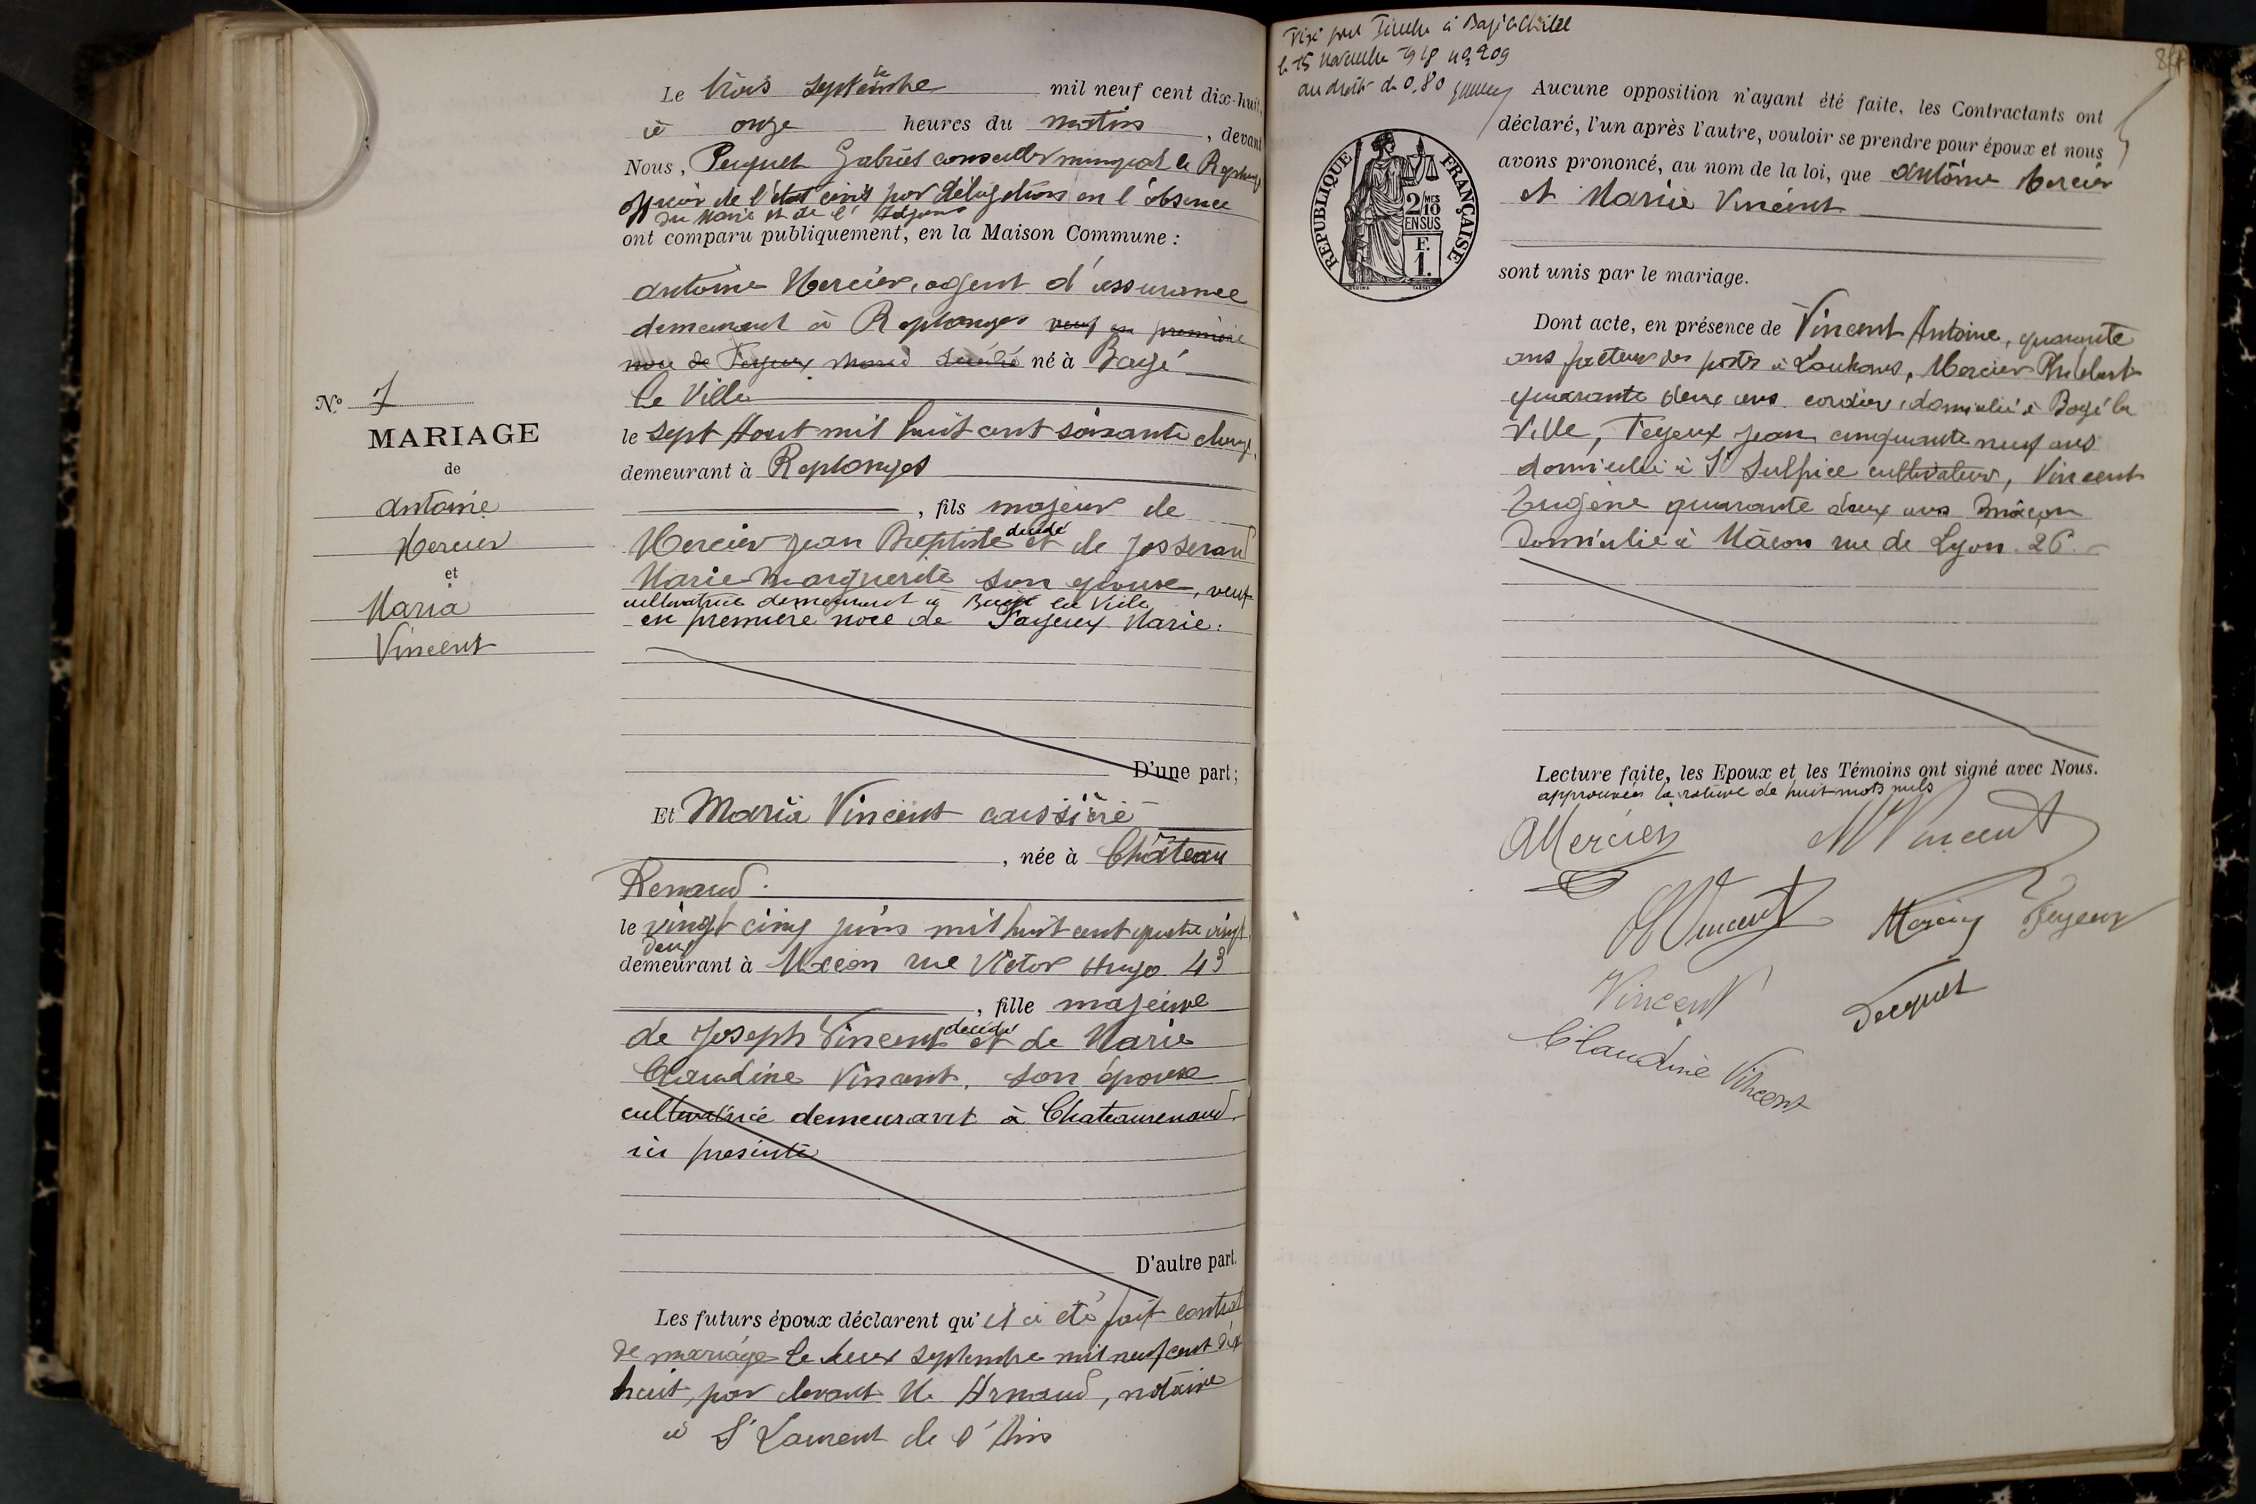 Le trois septembre mil neuf cent dix-huit,
à onze heures du matin, devant
Nous, Gabriel conseiller municipal de Replonges
officier de l'état civil par délégation en l'absence
du Maire et de l'Adjoint
ont comparu publiquement, en la Maison Commune :
Antoine Mercier, agent d'assurance
demeurant à Replonges veuf en première
noce de Feyeux né à Bagé
la Ville
le sept Aout mil huit cent soixante
demeurant à Replonges
, fils majeur de
décédé
Mercier Jean Baptiste et de Josserand
Marie Marguerite son épouse, veuf
cultivatrice demeurant à Bagé la Ville
en première noce de Fayeux Marie.
D'une part;
N° 7
MARIAGE
de
Antoine
Mercier
et
Maria
Vincent
Et Maria Vincent caissière
, née à Château
Renaud.
le vingt cinq juin mil huit cent quatre vingt
deux
demeurant à Macon rue Victor Hugo 43
, fille majeure
décédé
de Joseph Vincent et de Marie
Claudine Vincent, son épouse
cultivatrice demeurant à Chateaurenaud
ici présente
D'autre part.
Les futurs époux déclarent qu'il a été fait contrat
de mariage le deux septembre mil neuf cent dix
huit, par devant Me Arnaud, notaire
à St Laurent de l'Ain
Visé pour Timbre à Bagé le Châtel
le 15 novembre 1918 no 209
au droit de 0,80
Aucune opposition n'ayant été faite, les Contractants ont
déclaré, l'un après l'autre, vouloir se prendre pour époux et nous
avons prononcé, au nom de la loi, que Antoine Mercier
et Maria Vincent
sont unis par le mariage.
RÉPUBLIQUE FRANÇAISE
2 MES
10
EN SUS
F.
1.
Dont acte, en présence de Vincent Antoine, quarante
ans facteur des postes à Louhans, Mercier Philibert
quarante deux ans cordier domicilié à Bagé la
Ville, Feyeux Jean cinquante neuf ans
domicilié à St Sulpice cultivateur, Vincent
Eugène quarante deux ans maçon
Domicilié à Mâcon rue de Lyon 26.
Lecture faite, les Epoux et les Témoins ont signé avec Nous.
approuvée la rature de huit mots nuls
AMercier
M Vincent
Vincent
Mercier
Feyeux
Vincent
Claudine Vincent